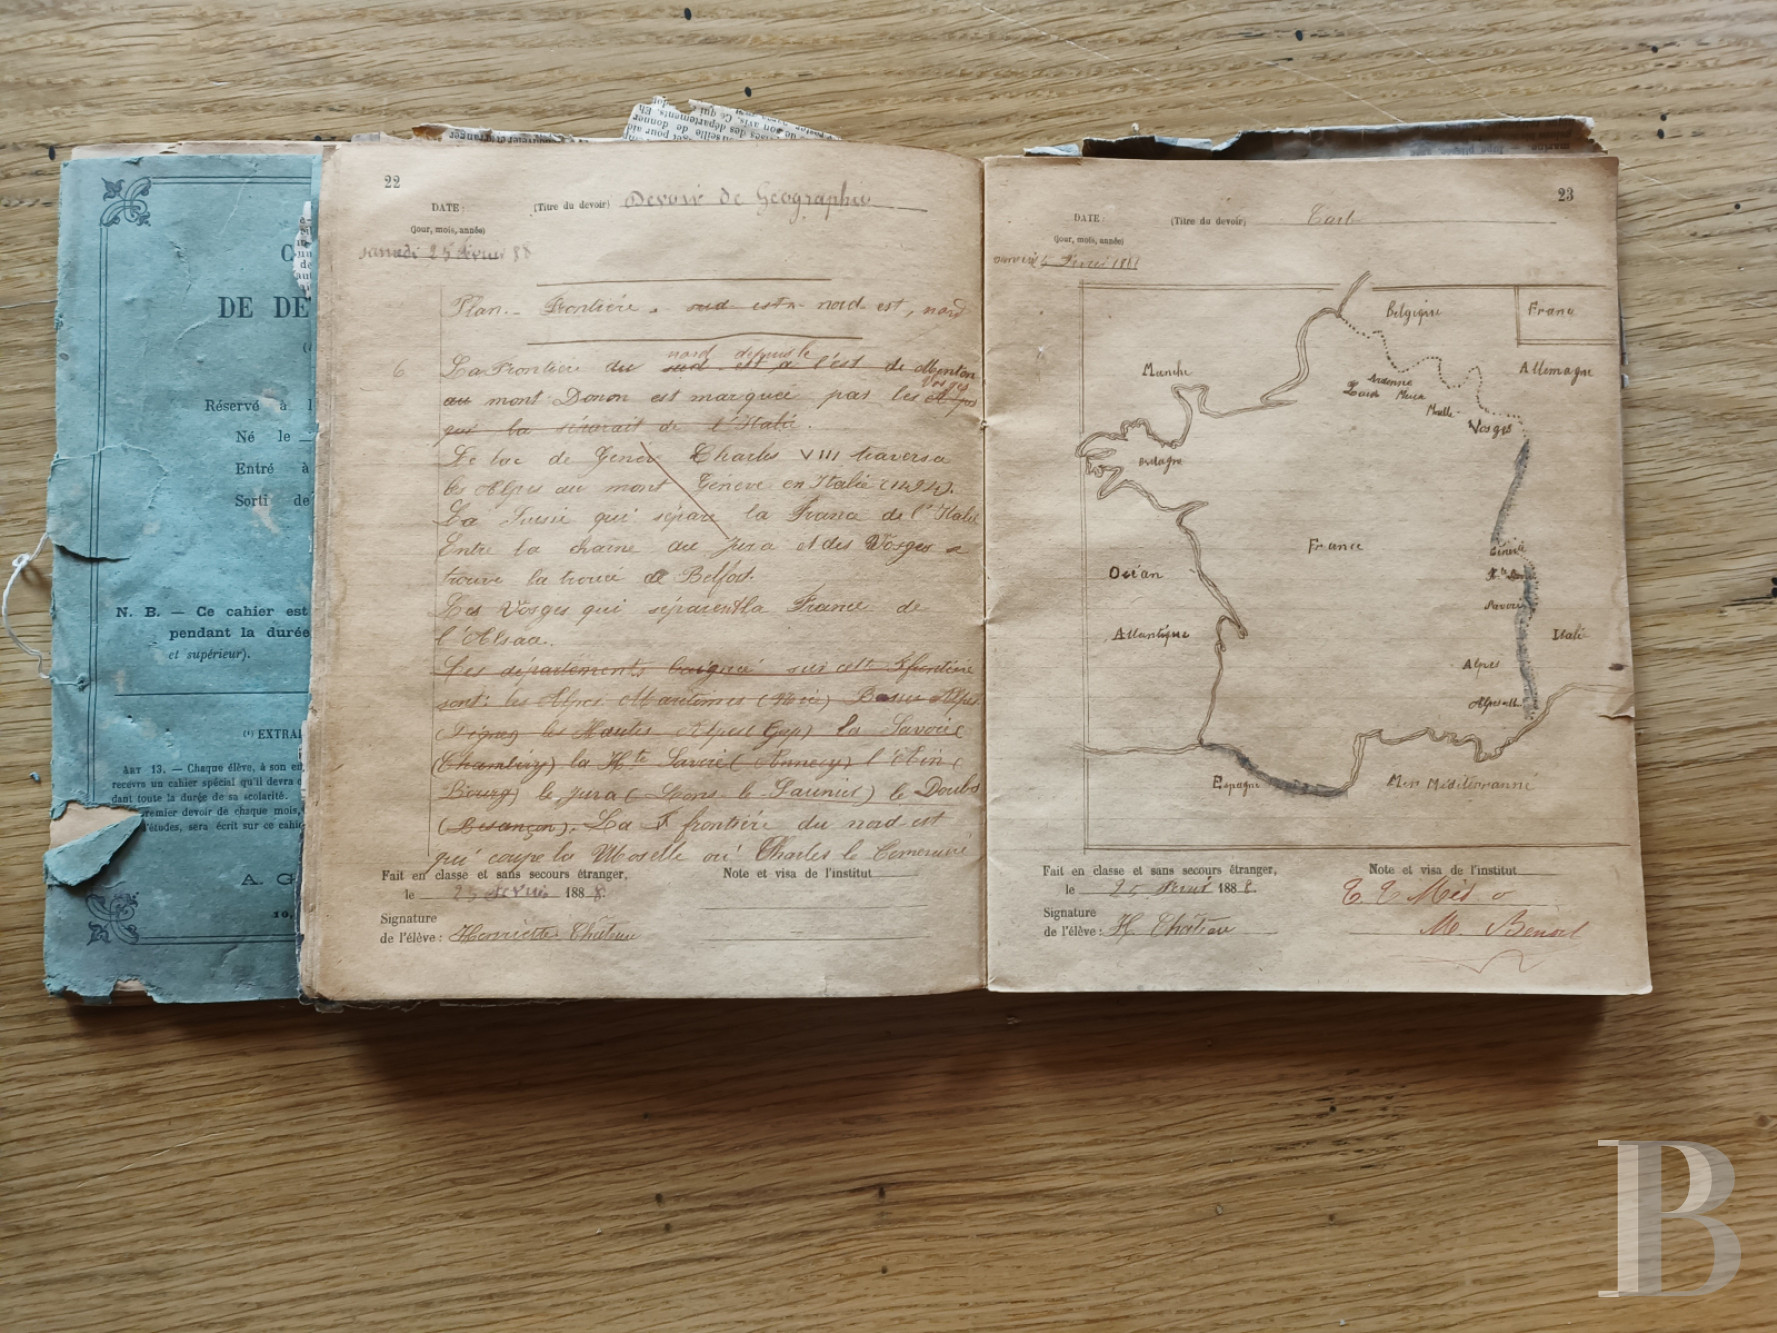 DE DE
Réservé à l
Né le
Entré à
Sorti de
N. B. — Ce cahier est
pendant la durée
et supérieur).
(1) EXTRAI
ART 13. — Chaque élève, à son en
recevra un cahier spécial qu'il devra c
dant toute la durée de sa scolarité.
premier devoir de chaque mois,
d'études, sera écrit sur ce cahie
A. G
22
DATE:
(jour, mois, année)
(Titre du devoir) Devoir de Géographie
samedi 25 février 88
Plan. - Frontière. sud est - nord-est, nord
nord depuis le
6 La Frontière du sud est à l'est de Menton
Vosges
au mont Donon est marquée par les Alpes
qui la séparait de l'Italie.
Le lac de Genève Charles VIII traversa
les Alpes au mont Genève en Italie (1494).
La qui sépare la France de l'Italie
Entre la chaine du Jura et des Vosges se
trouve la troué de Belfort.
Les Vosges qui séparent la France de
l'Alsace.
Les départements sur cette frontière
sont: les Alpes Maritimes (Nice) Basses Alpes
(Digne) les Hautes Alpes (Gap) la Savoie (
(Chambéry) la Hte Savoie (Annecy) l'Ain (
Bourg) le Jura (Lons le Saunier) le Doubs
(Besançon). La frontière du nord-est
qui coupe la Moselle où Charles le Temeraire
Fait en classe et sans secours étranger,
le 25 février 1888.
Signature
de l'élève: Henriette Château
Note et visa de l'institut
23
DATE:
(jour, mois, année)
(Titre du devoir) Cart
février 1888
Belgique
France
Manche
Allemagne
Ardenne
Meuse
Moselle
Vosges
Bretagne
France
Océan
Genève
Savoie
Atlantique
Italie
Alpes
Espagne
Mer Méditerranné
Fait en classe et sans secours étranger,
le 25 février 1888.
Signature
de l'élève: H. Château
Note et visa de l'institut
M. Benoit
B